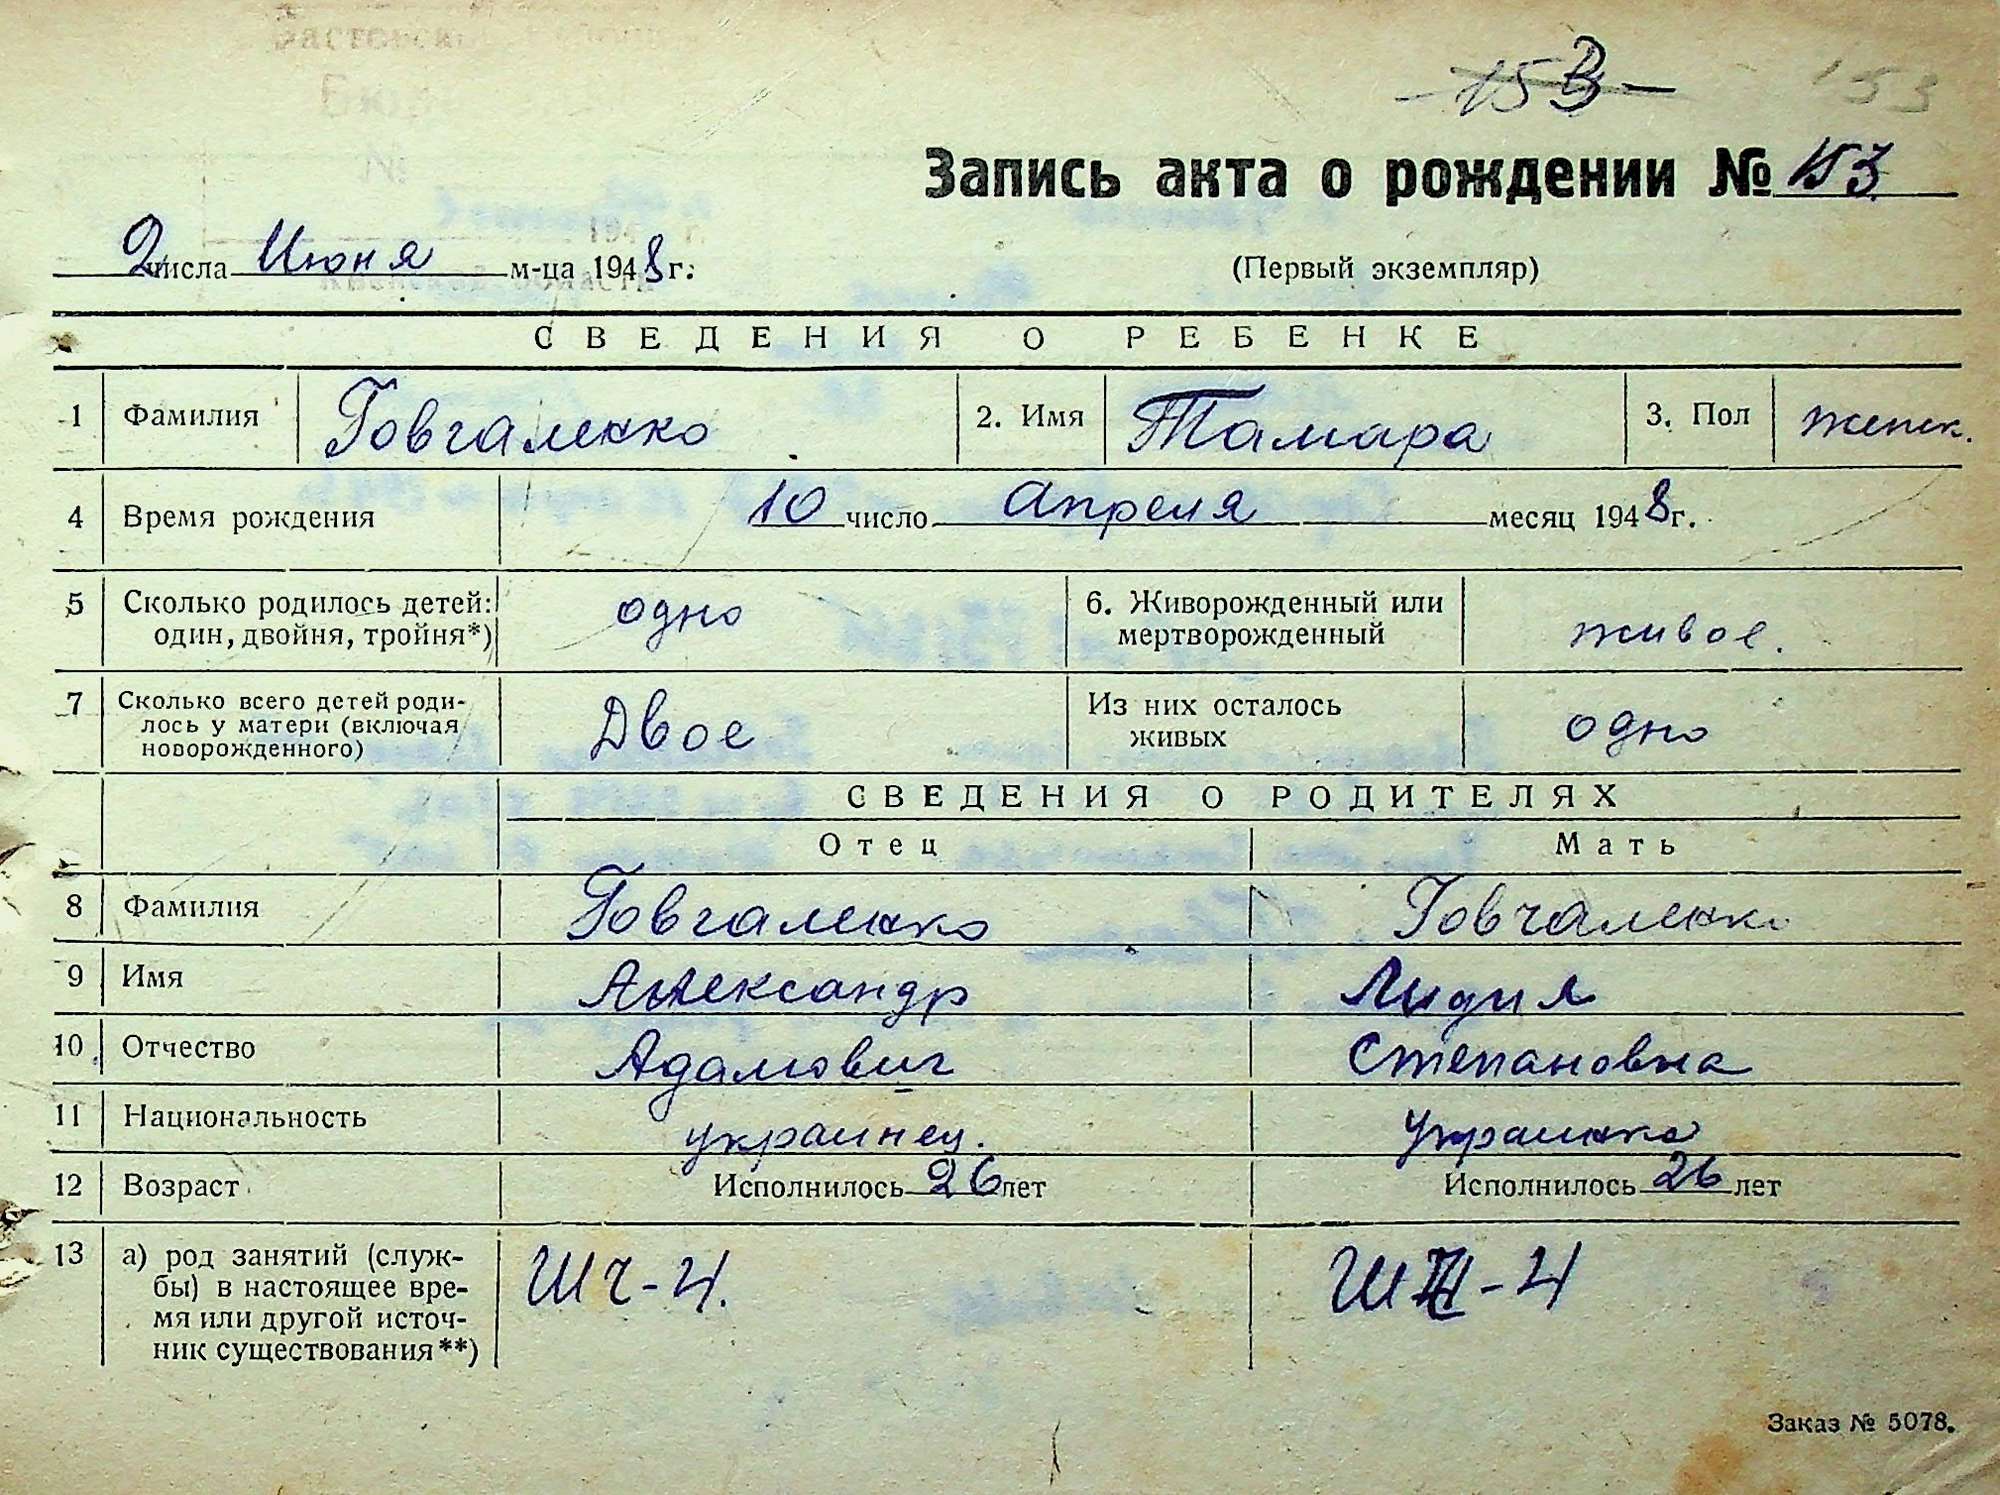 153
153
Запись акта о рождении № 153
2 числа Июня м-ца 1948 г.
(Первый экземпляр)
области
СВЕДЕНИЯ О РЕБЕНКЕ
1 Фамилия Говгаленко 2. Имя Тамара 3. Пол женск.
4 Время рождения 10 число Апреля месяц 1948 г.
5 Сколько родилось детей: один, двойня, тройня*) одно 6. Живорожденный или мертворожденный живое.
7 Сколько всего детей роди-
лось у матери (включая
новорожденного) Двое Из них осталось живых одно
СВЕДЕНИЯ О РОДИТЕЛЯХ
Отец Мать
8 Фамилия Говгаленко Говгаленко
9 Имя Александр Лидия
10 Отчество Адамович Степановна
11 Национальность украинец. украинка
12 Возраст Исполнилось 26 лет Исполнилось 26 лет
13 а) род занятий (служ-
бы) в настоящее вре-
мя или другой источ-
ник существования**) ШЧ-4. ШЧ-4
Заказ № 5078.